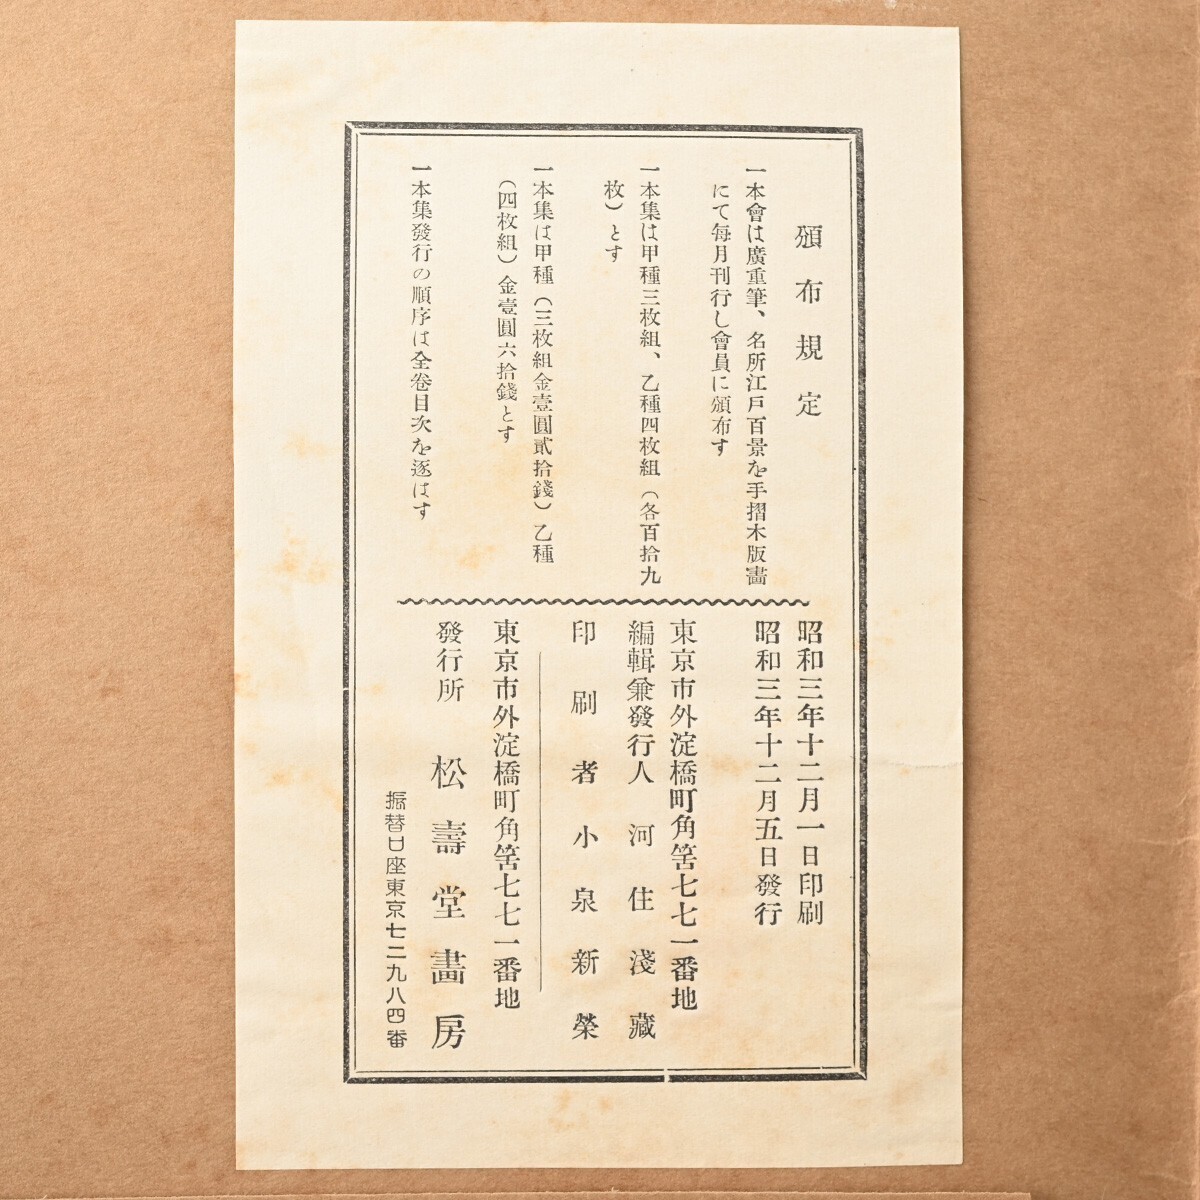 頒布規定
一本會は廣重筆、名所江戸百景を手摺木版畵
にて每月刊行し會員に頒布す
一本集は甲種三枚組、乙種四枚組(各百拾九
枚)とす
一本集は甲種(三枚組金壹圓貳拾錢)乙種
(四枚組)金壹圓六拾錢とす
一本集發行の順序は全卷目次を逐はす
昭和三年十二月一日印刷
昭和三年十二月五日發行
東京市外淀橋町角筈七七一番地
編輯兼發行人 河住淺藏
印刷者 小泉新榮
東京市外淀橋町角筈七七一番地
發行所 松壽堂畵房
振替口座東京七二九八四番